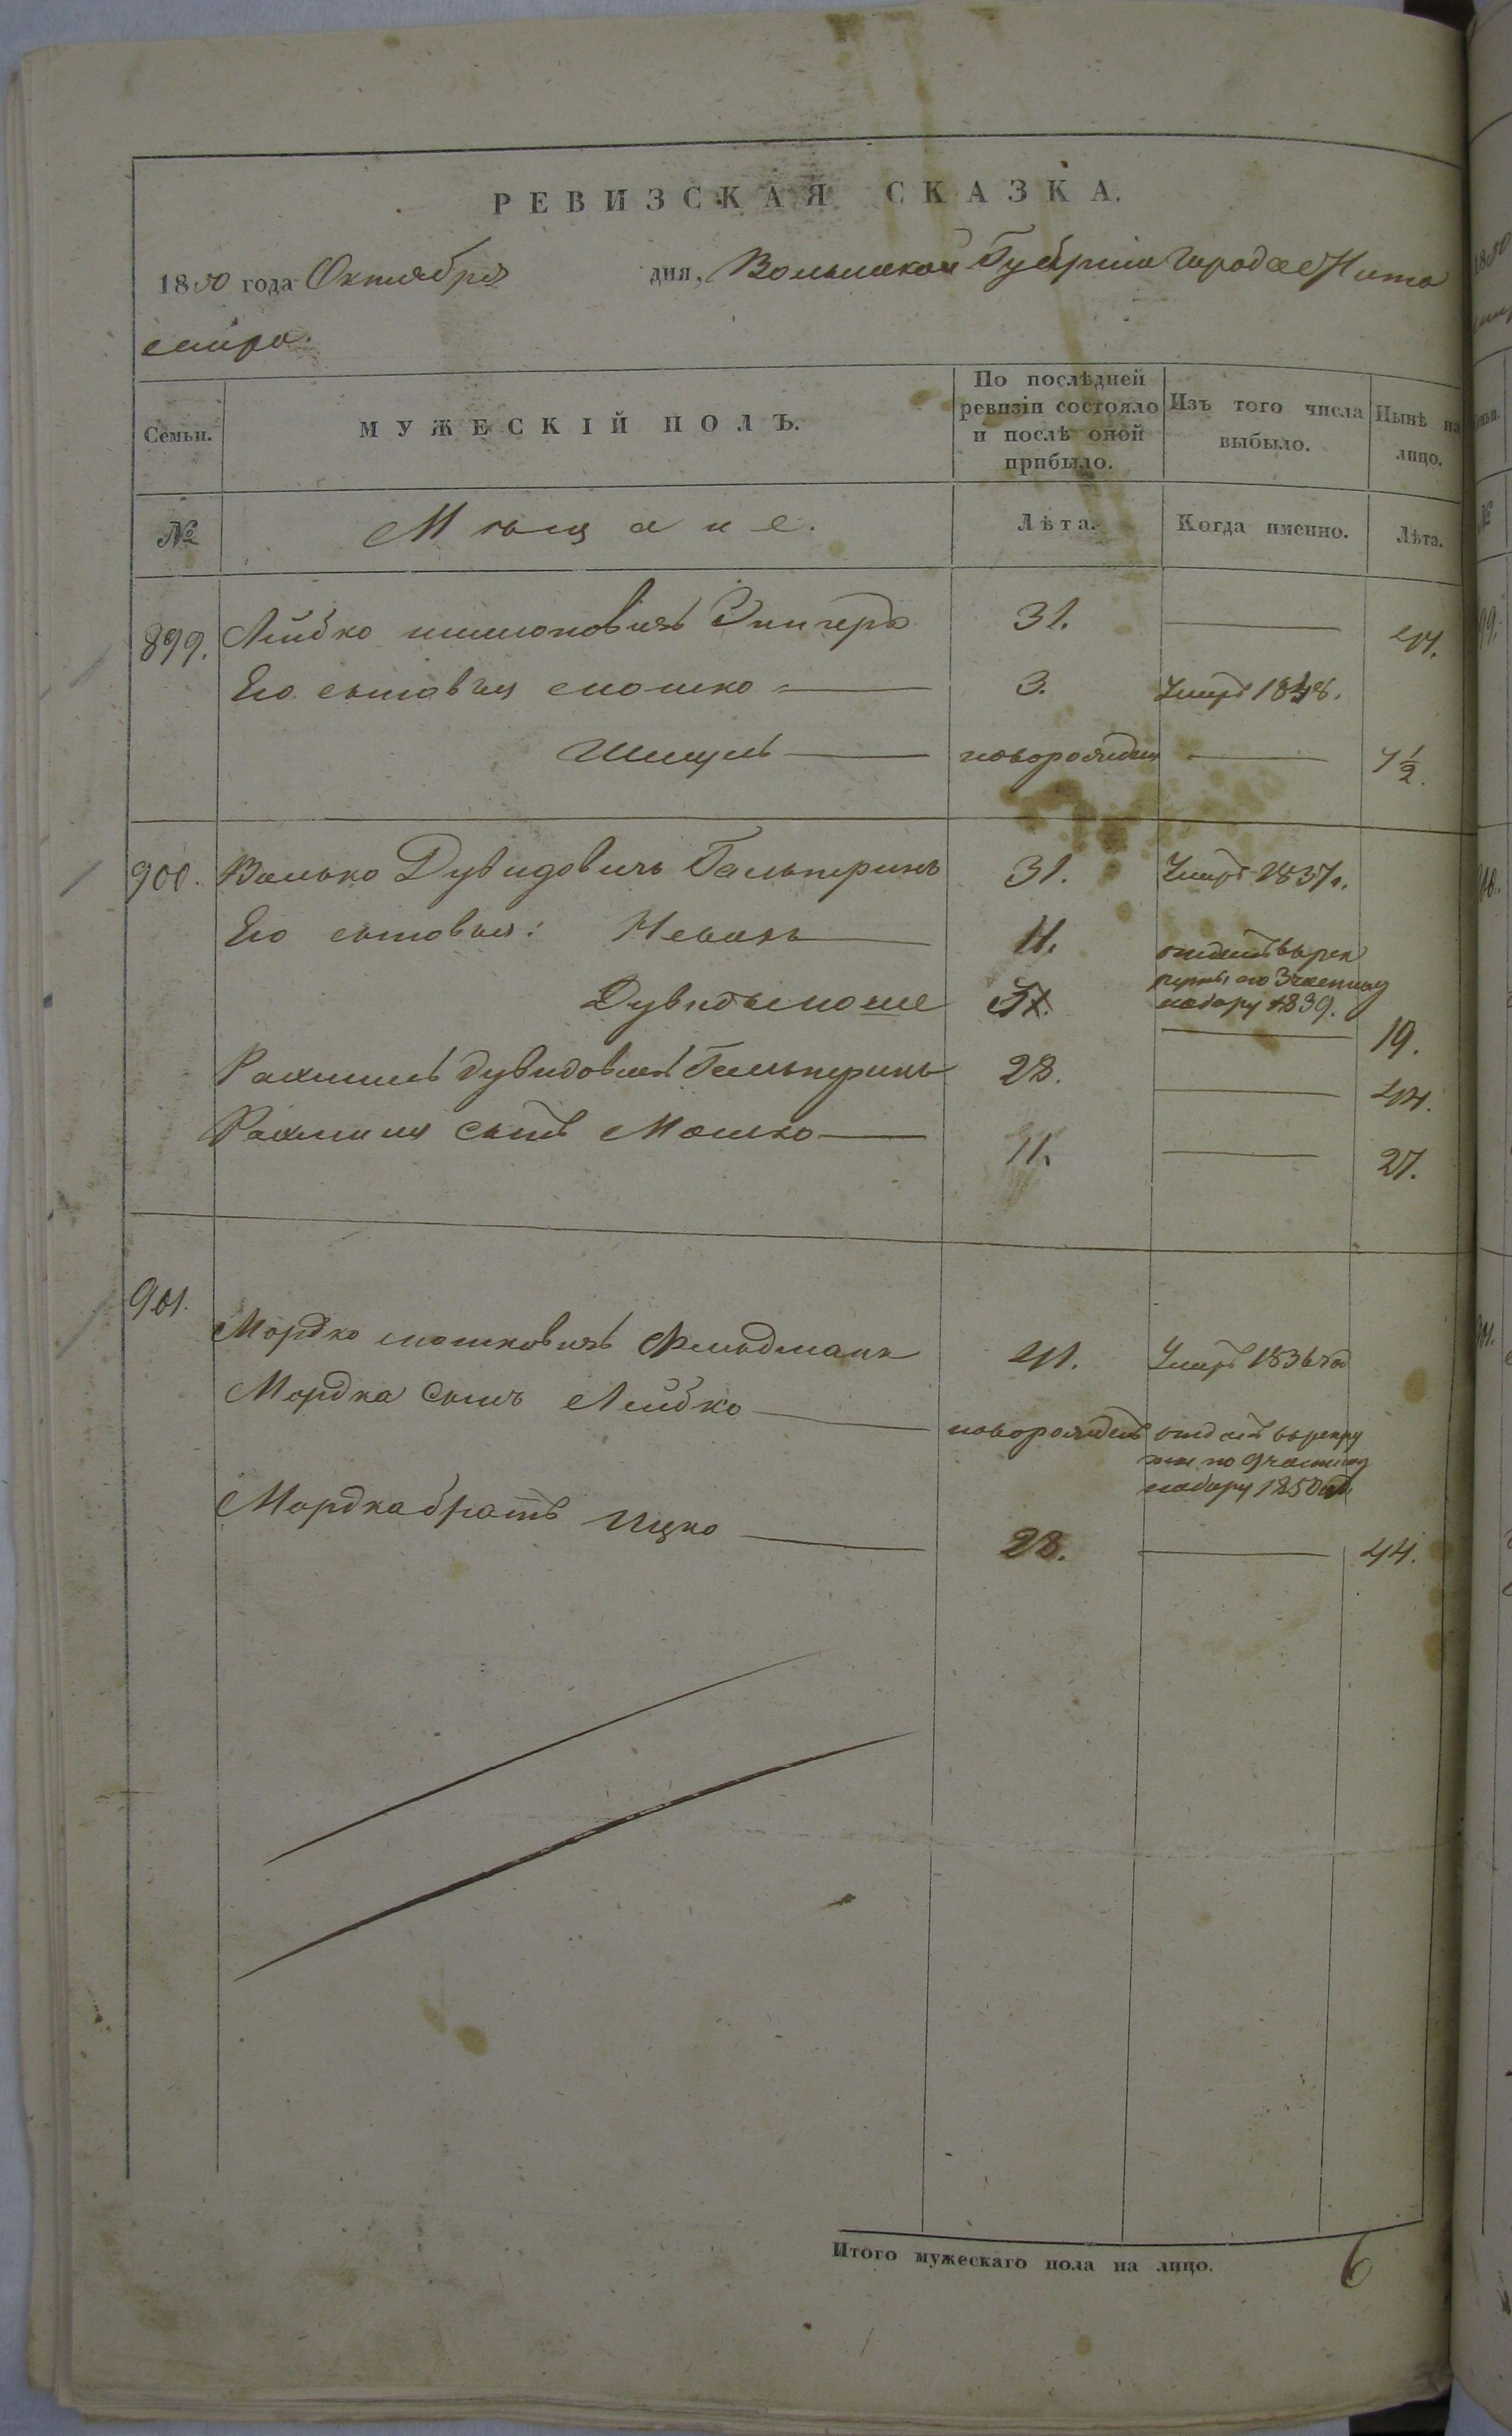 РЕВИЗСКАЯ СКАЗКА.
1850 года Октября дня, Волынской Губерніи города Жито
мира.
Семьи.
МУЖЕСКІЙ ПОЛЪ.
По послѣдней
ревизіи состояло
и послѣ оной
прибыло.
Изъ того числа
выбыло.
Нынѣ на
лицо.
№
Мѣщане.
Лѣта.
Когда именно.
Лѣта.
899. Лейбко Шмоновичъ 31. 47.
Его сыновья Мошко 3. Умеръ 1848.
Шмуль новорожден 7 1/2.
900. Волько Дувидовичъ Гальперинъ 31. Умеръ 1837 г.
Его сыновья: 11. отданъ въ рек
руты по 3 частному
набору 1839.
Дувидъ Моше 19.
Рахмиль Дувидовичъ Гальперинъ 28. 44.
Рахмиля сынъ Мошко 11. 27.
901.
Мордко Мошковичъ Фельдманъ 41. Умеръ 1836 год
Мордка сынъ Лейбко новорожденъ отданъ въ рекру
ты по 9 частному
набору 1850 год
Мордка братъ Ицко 28. 44.
Итого мужескаго пола на лицо. 6